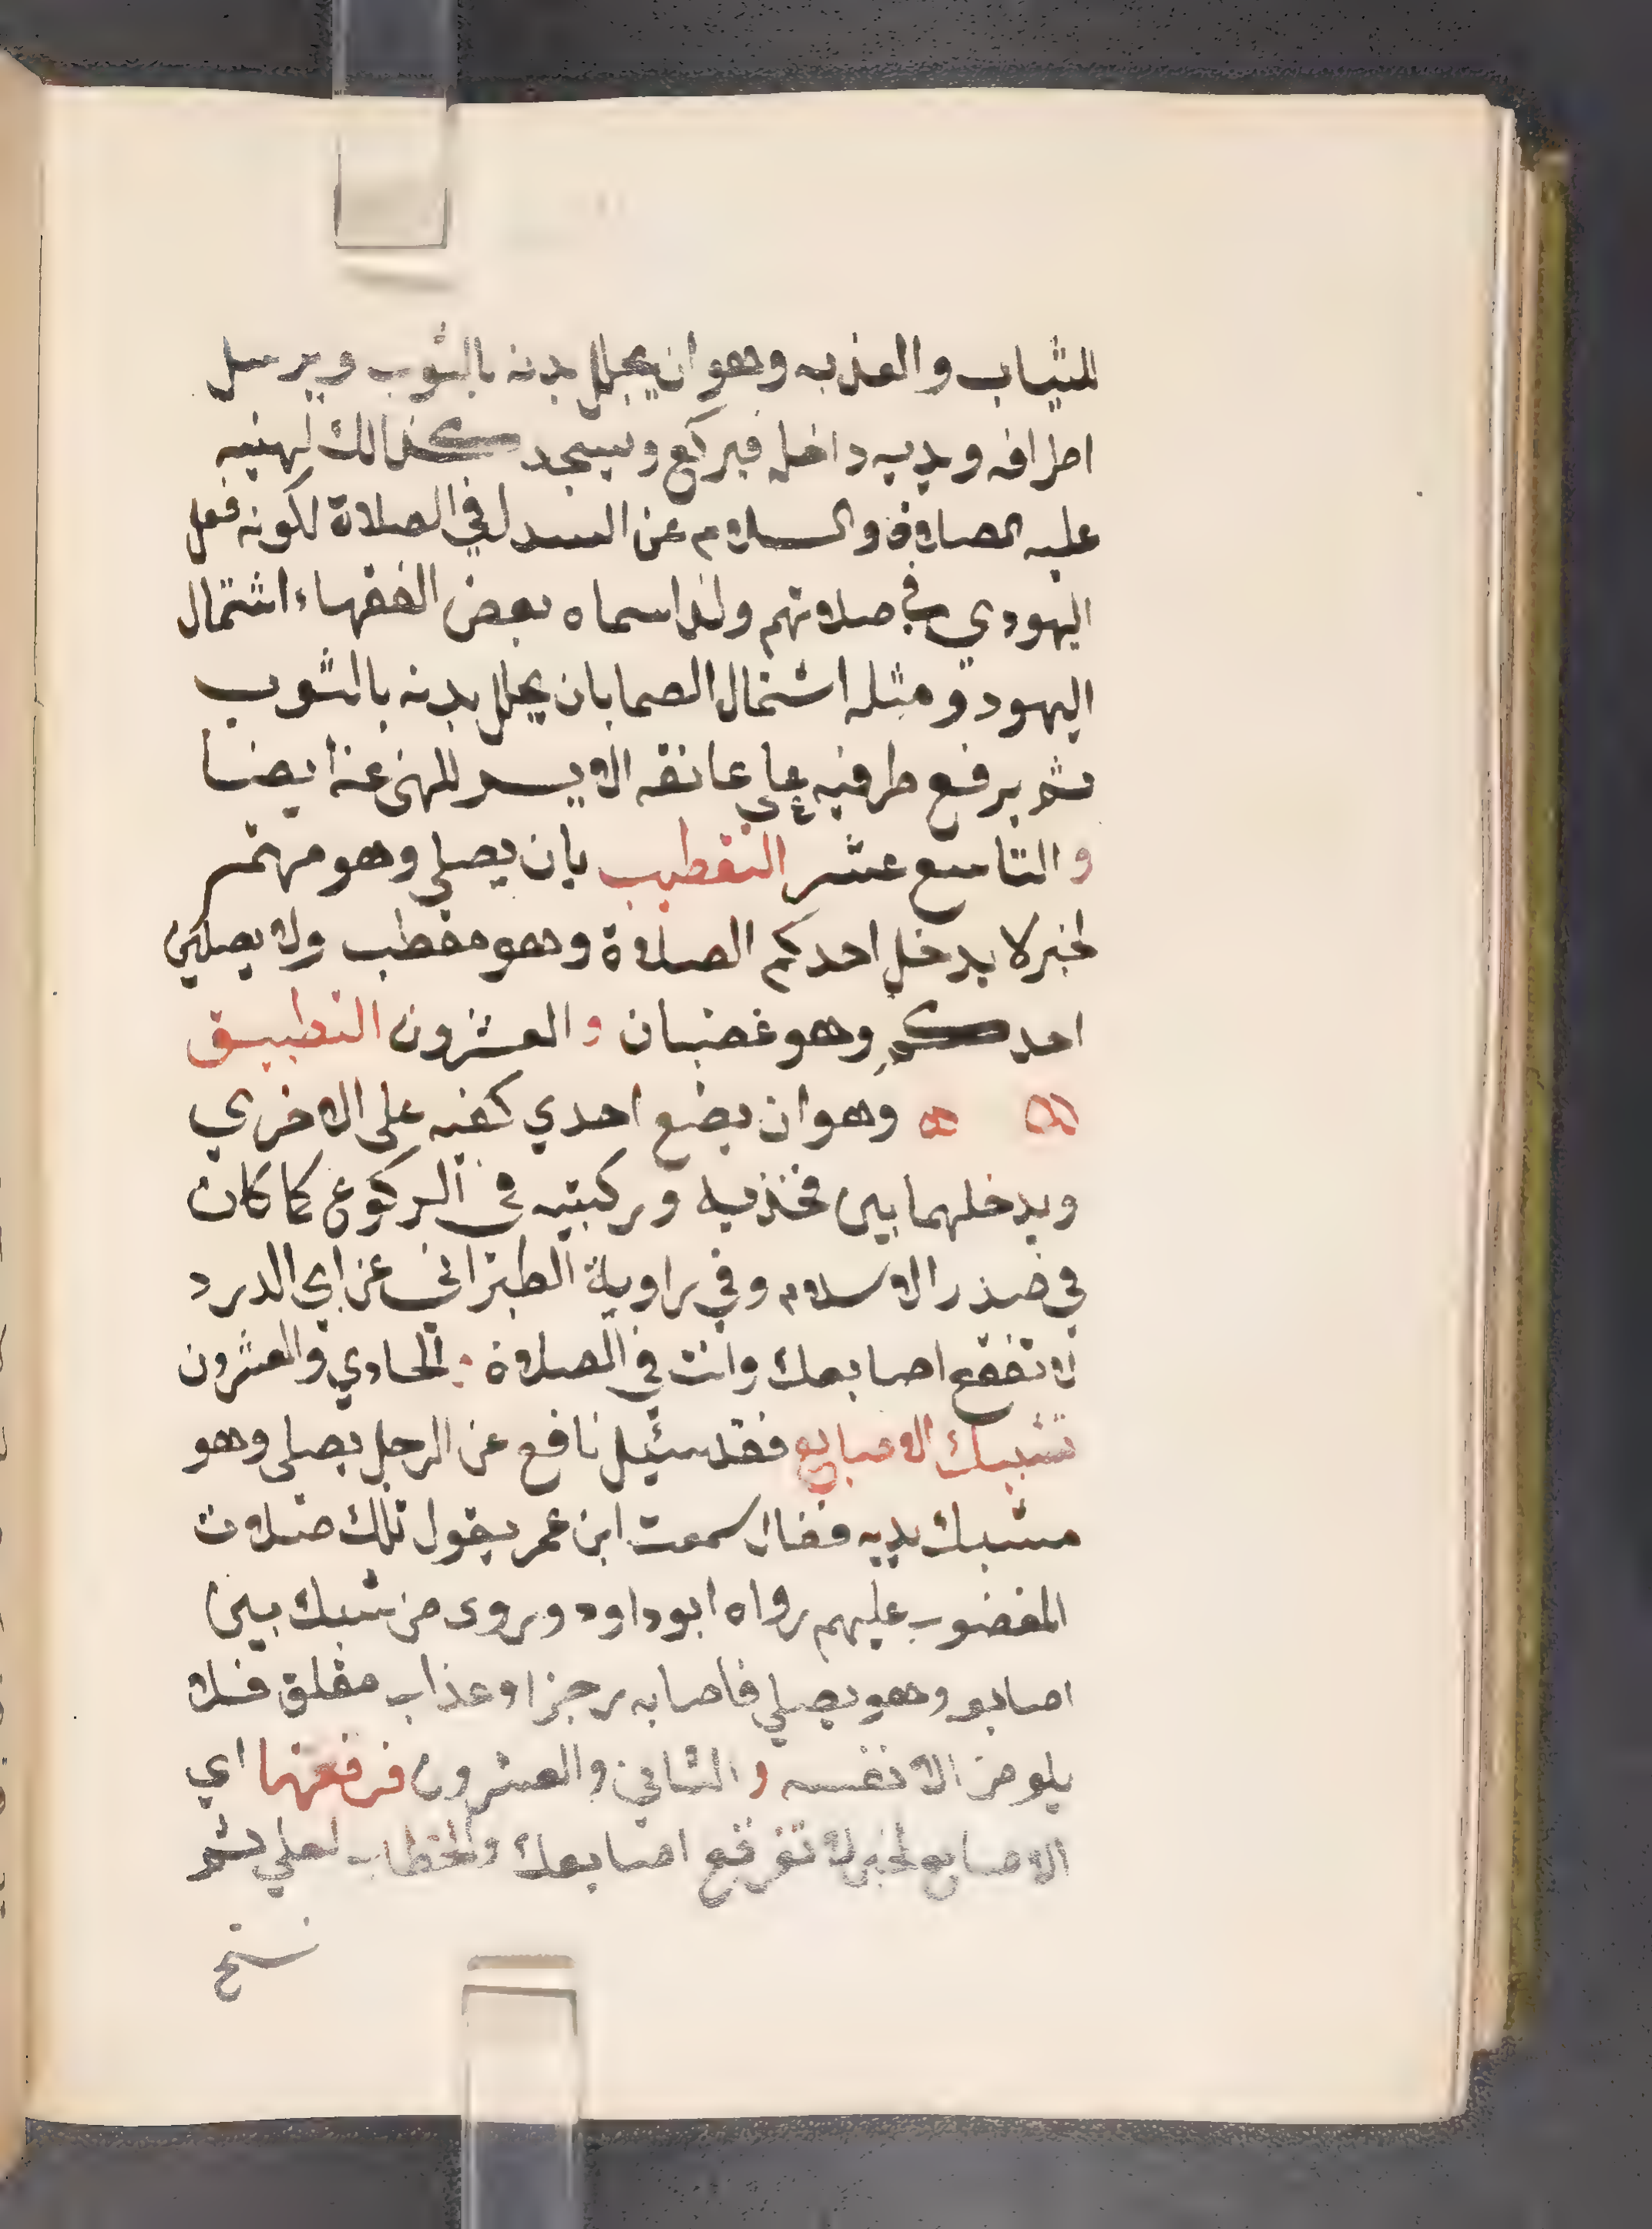 للثياب والعذبه وهو ان يجلل بدنه بالثوب ويرسل
اطرافه ويديه داخله فيركع ويسجد كذالك لهنيه
عليه الصلاوة والسلام عن السدل في الصلاة لكونه فعل
اليهودي في صلاتهم ولذا سماه بعض الفقهاء اشتمال
اليهود ومثله اشتمال الصما بان يجلل بدنه بالثوب
ثم يرفع طرفيه على عاتقه الايسر للهنى عنه ايضا
والتاسع عشر التقطيب بان يصلي وهو مهتم
لخبر لا يدخل احدكم الصلاوة وهو مقطب ولا يصلين
احدكم وهو غضبان والعشرون التطبيق
وهو ان يضع احدي كفيه على الاخرى
ويدخلهما بين فخذيه وركبتيه في الركوع كما كان
في صدر الاسلام وفي راوية الطبراني عن ابي الدرد
لا تفقع اصابعك وانت في الصلاوة والحادي والعشرون
تشبيك الاصابع فقد سئيل نافع عن الرجل يصلي وهو
مشبك يديه فقال سمعت ابن عمر يقول تلك صلات
المغضوب عليهم رواه ابو داود وروى من شبك بين
اصابعه وهو يصلي فاصابه رجز او عذاب مقلق فلا
يلو من الا نفسه والثاني والعشرون فرقعتها اي
الاصابع لخبر لا تفرقع اصابعك والخطاب لعلي ثم
نسخ